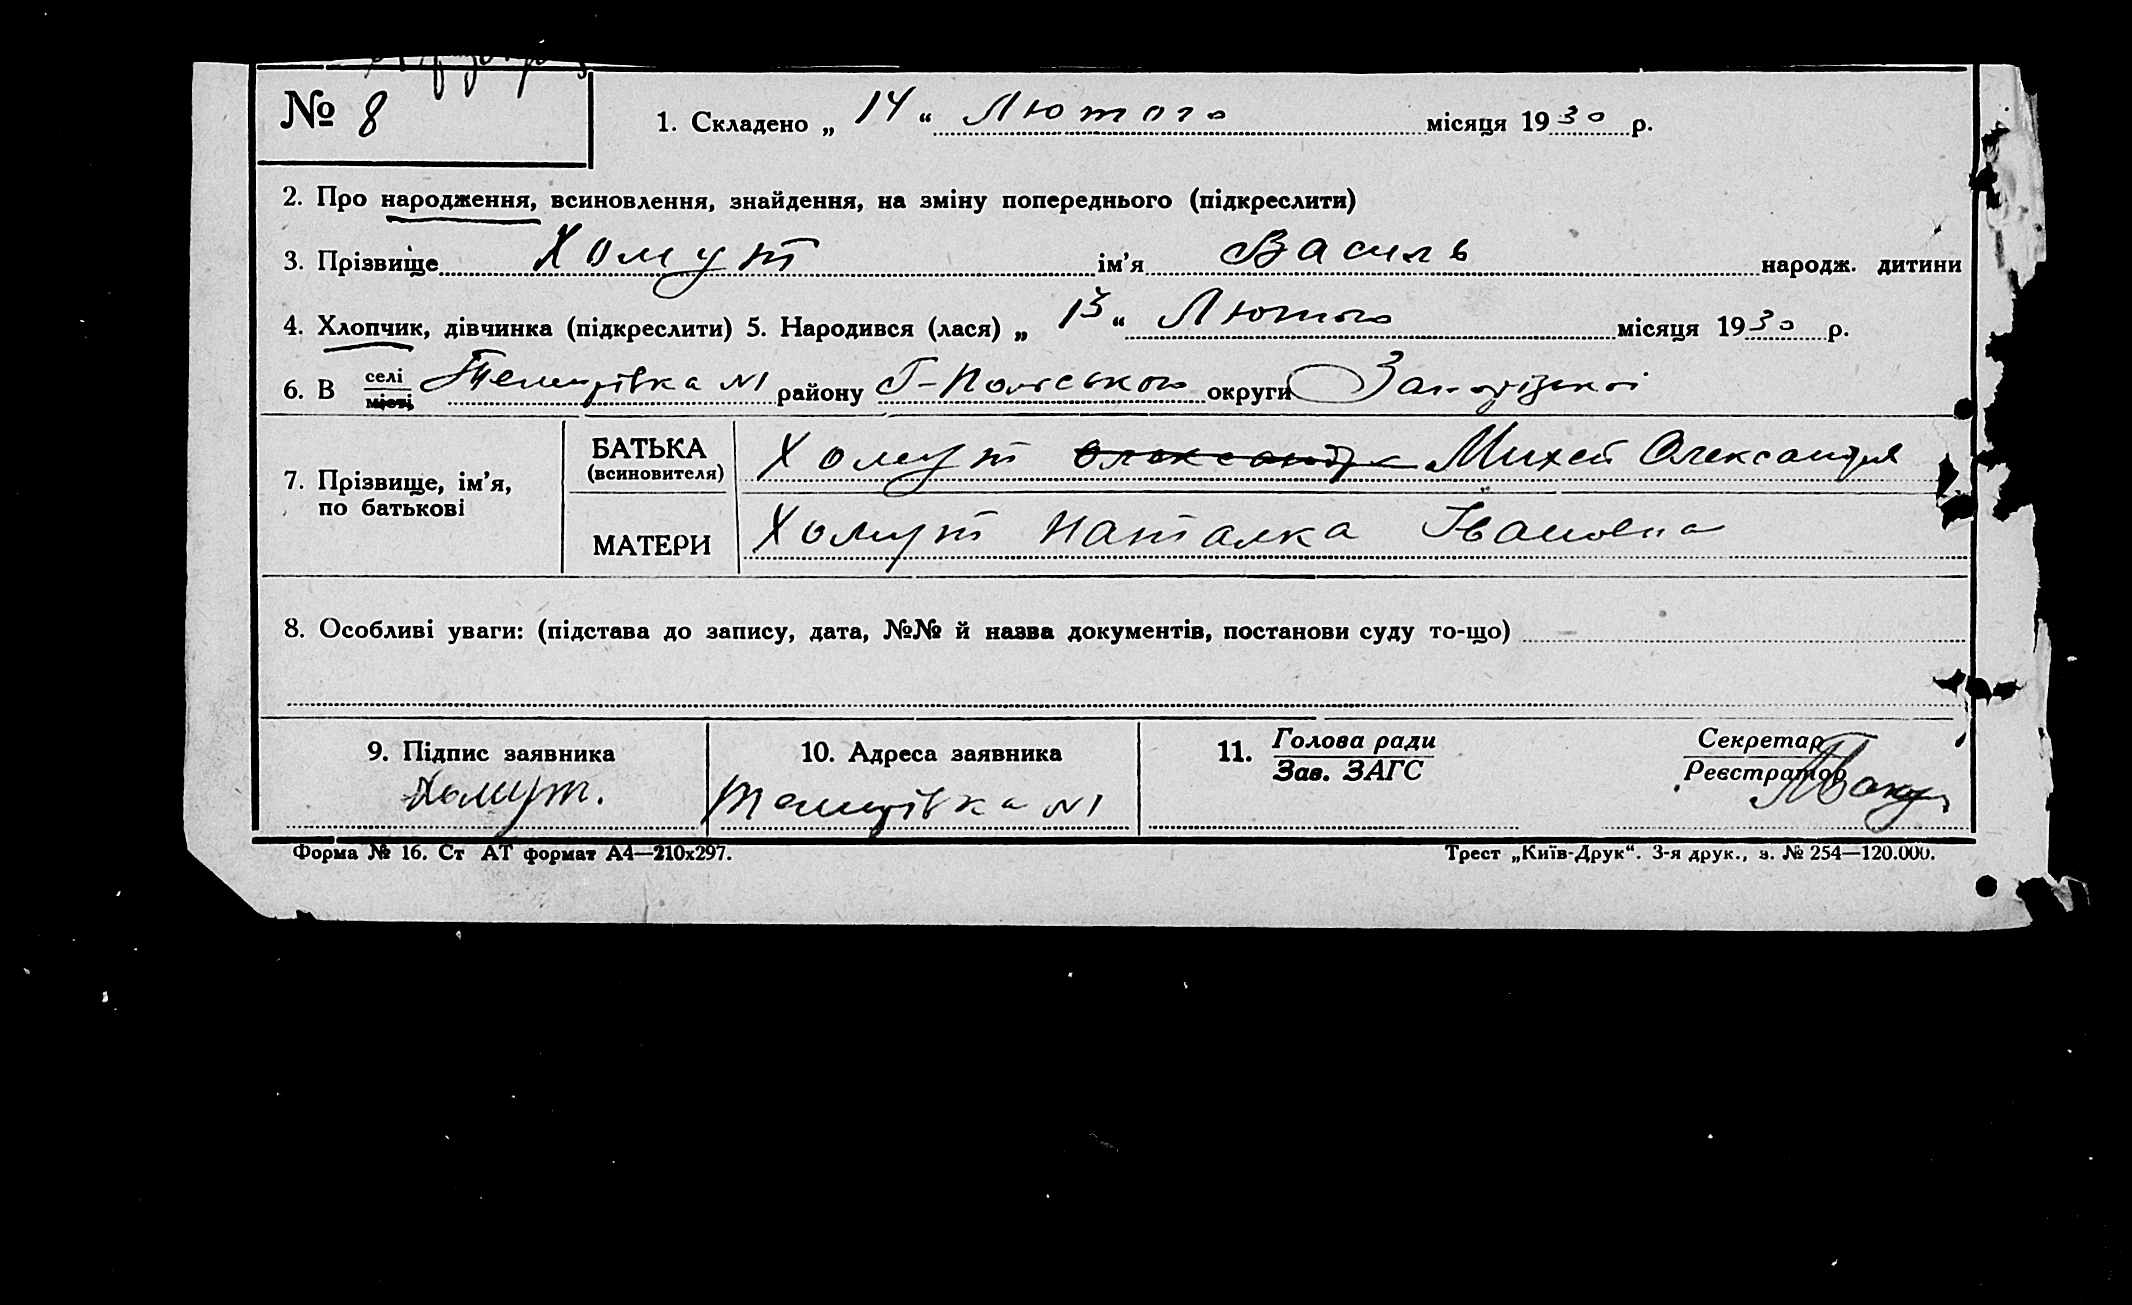 № 8
1. Складено „ 14 “ Лютого місяця 1930 р.
2. Про народження, всиновлення, знайдення, на зміну попереднього (підкреслити)
3. Прізвище Хомут ім’я Василь народж. дитини
4. Хлопчик, дівчинка (підкреслити) 5. Народився (лася) „ 13 “ Лютого місяця 1930 р.
6. В селі місті Темирівка №1 району Г-Польського округи Запорізької
7. Прізвище, ім’я, по батькові
БАТЬКА (всиновителя) Хомут Олександр Михей Олександрів
МАТЕРИ Хомут Наталка Івановна
8. Особливі уваги: (підстава до запису, дата, №№ й назва документів, постанови суду то-що)
9. Підпис заявника
Хомут.
10. Адреса заявника
Темирівка №1
11. Голова ради
Зав. ЗАГС
Секретар
Реєстратор
Форма № 16. Ст АТ формат А4—210х297.
Трест „Київ-Друк“. 3-я друк., з. № 254—120.000.